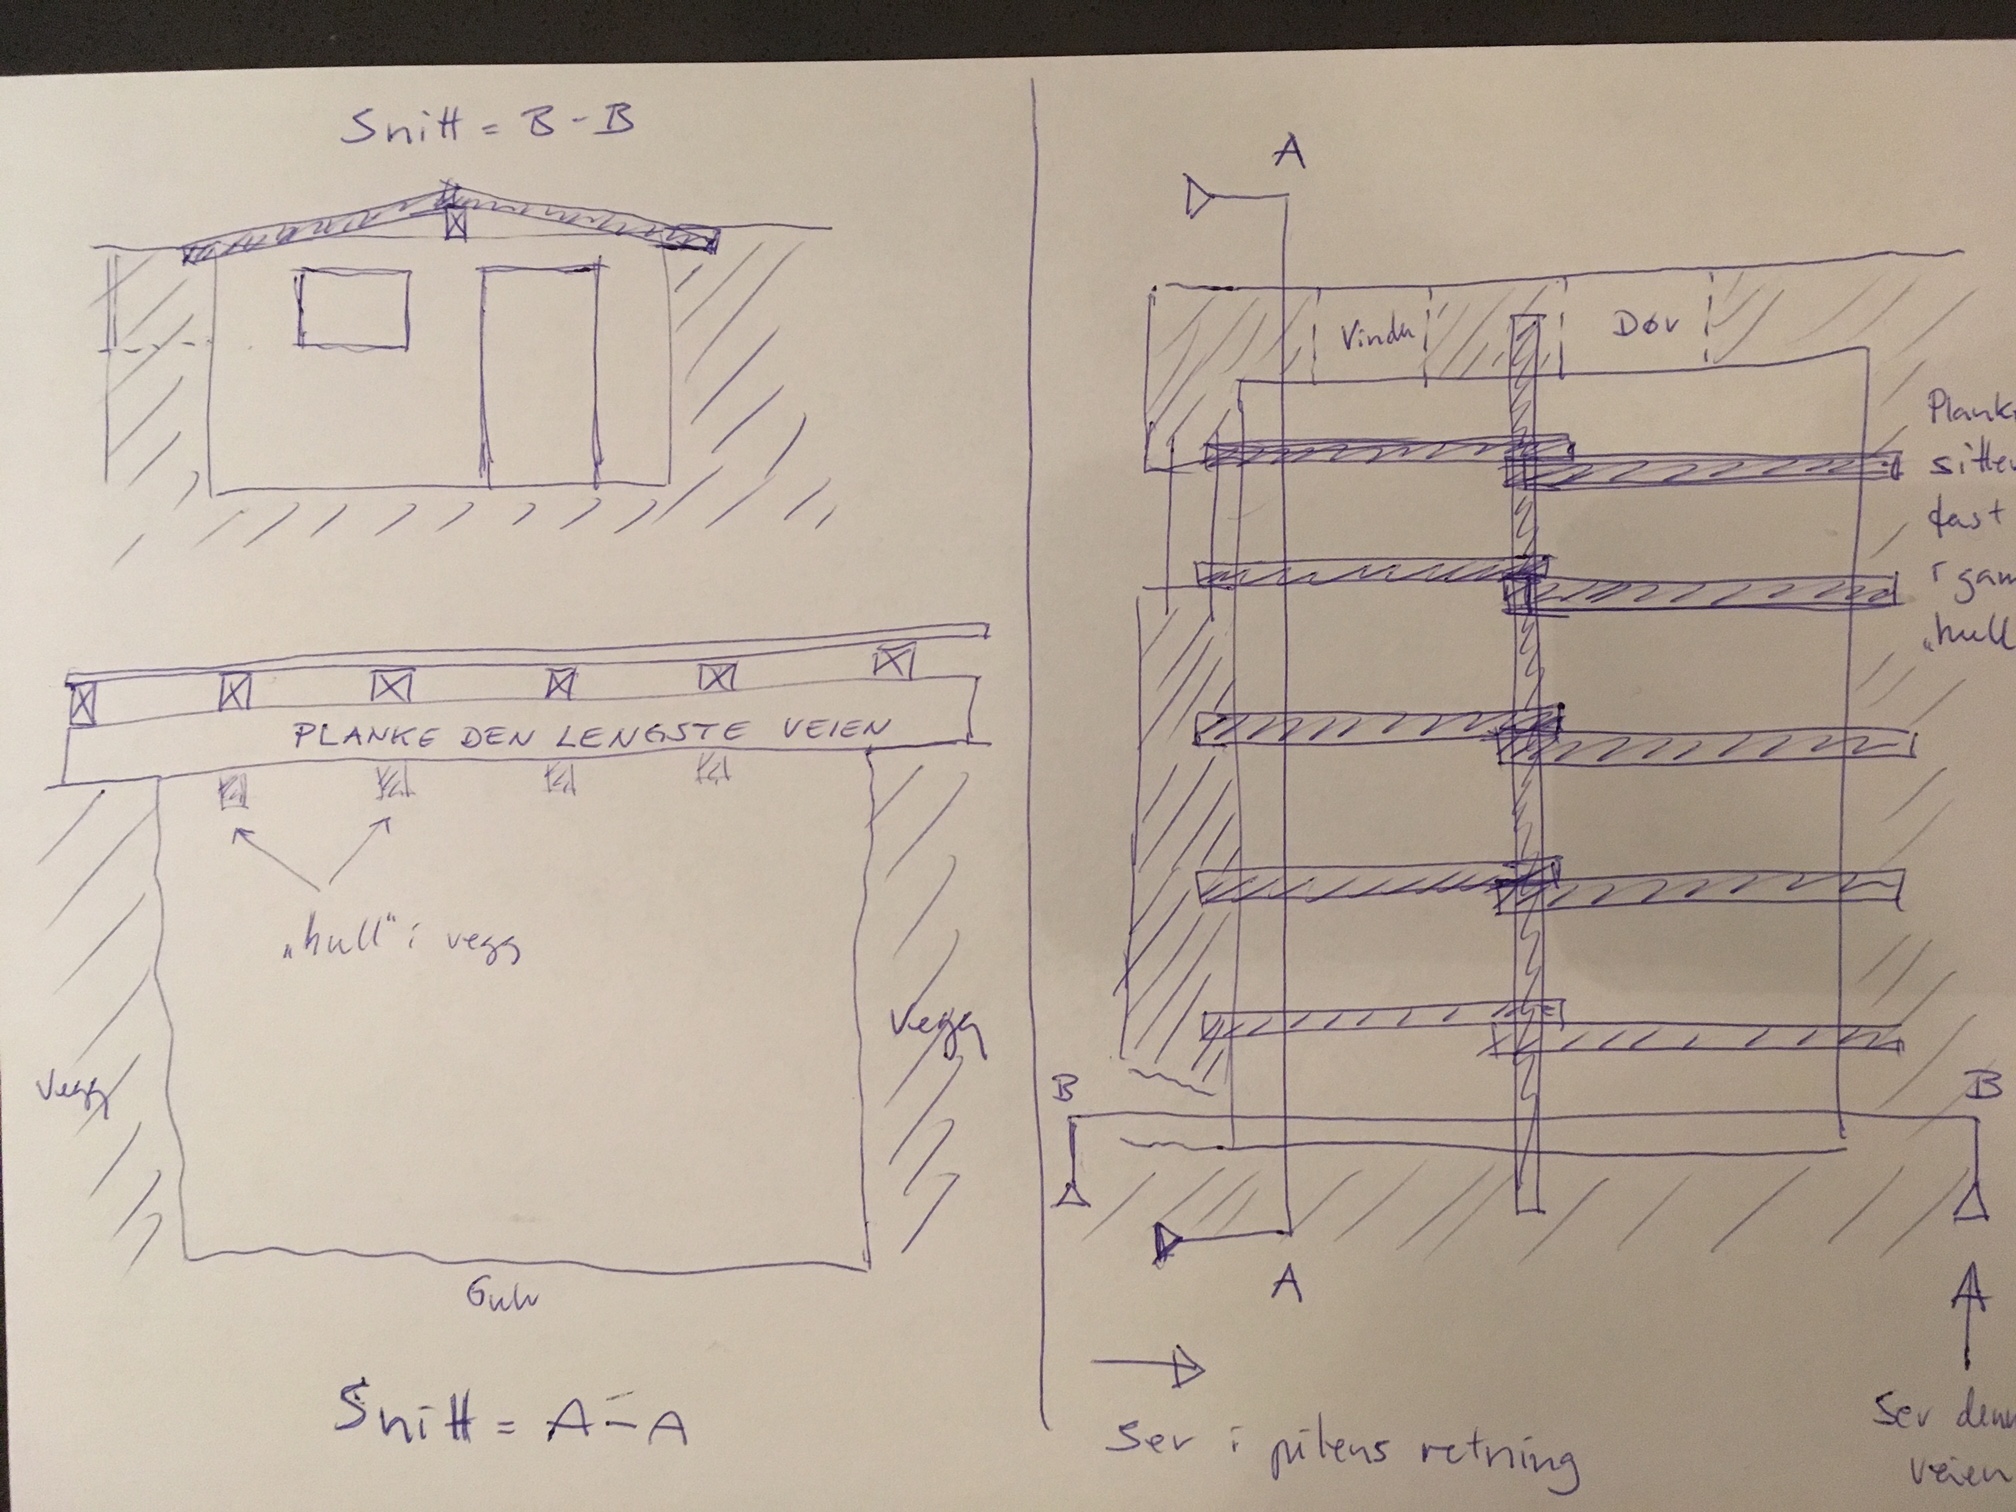 Snitt = B-B
PLANKE DEN LENGSTE VEIEN
„hull" i vegg
Vegg
Vegg
Gulv
Snitt = A-A
A
Vindu
Dør
Plank
sitter
fast
i gam
„hull
B
B
A
Ser i pilens retning
Ser denn
veien